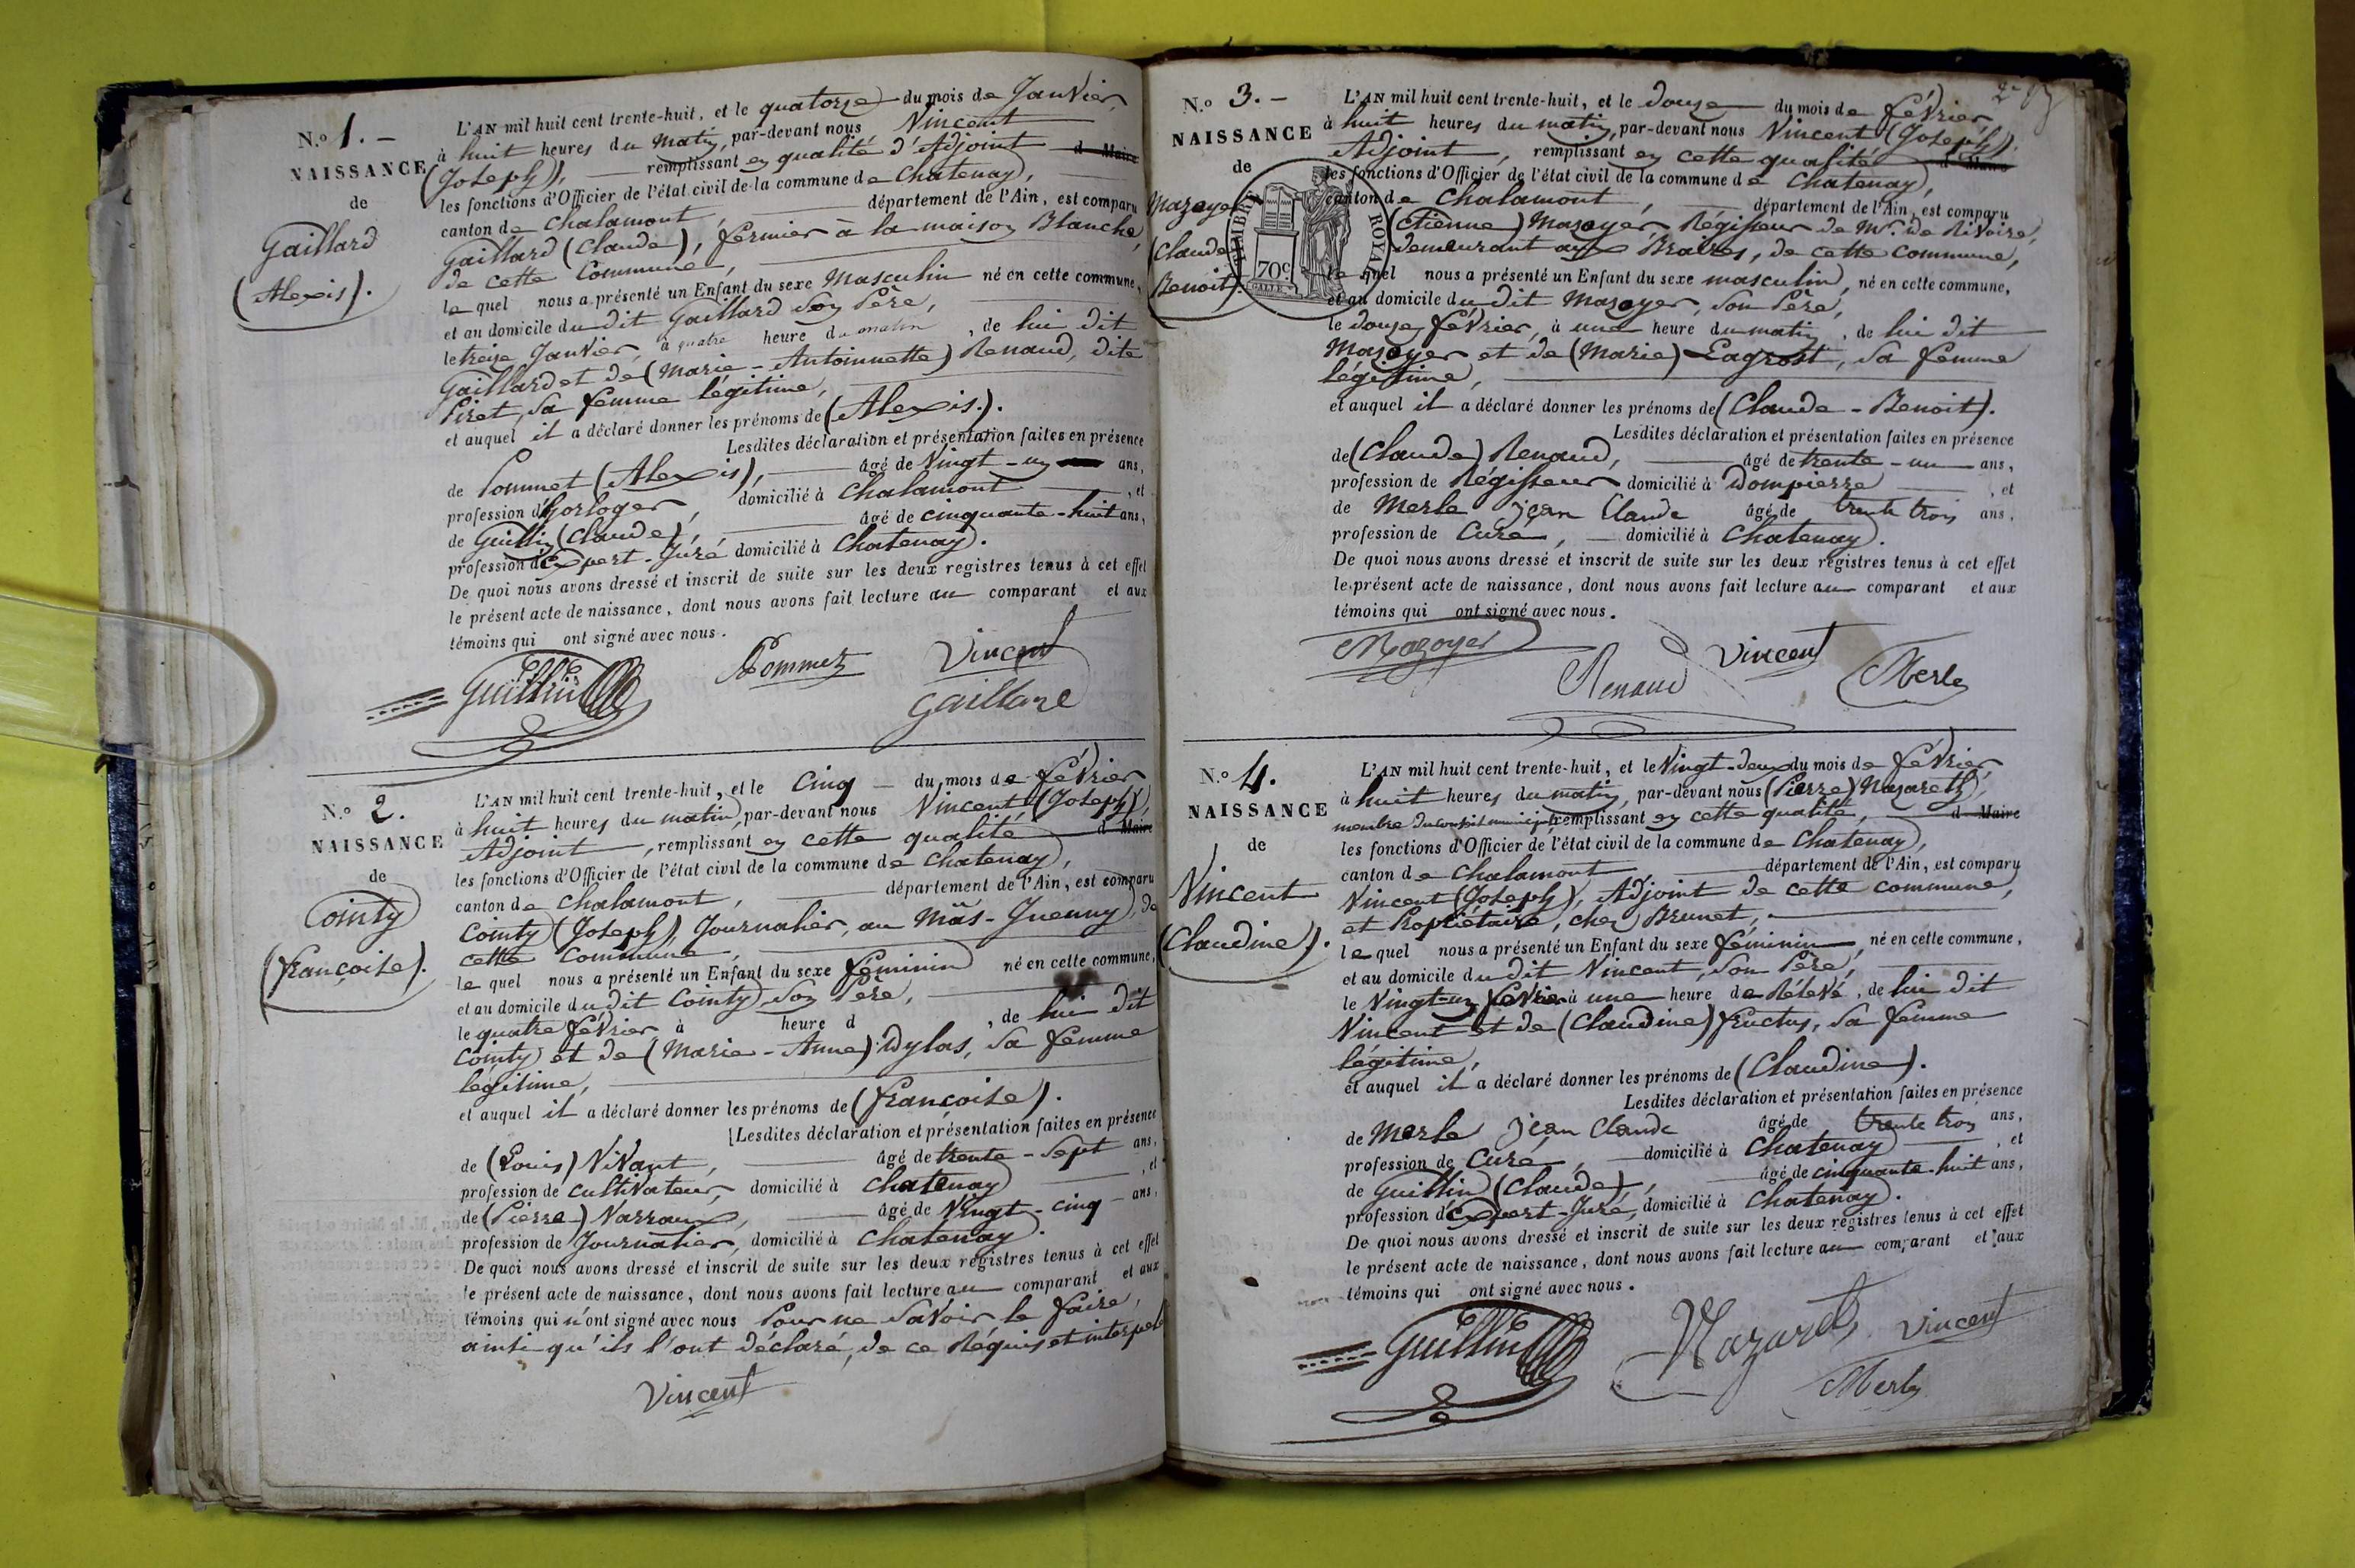 N.o 1. -
NAISSANCE
de
Gaillard
(Alexis).
L'AN mil huit cent trente-huit, et le quatorze du mois de Janvier,
à huit heures du matin, par-devant nous Vincent
(Joseph), remplissant en qualité d'Adjoint d Maire
les fonctions d'Officier de l'état civil de la commune de Chatenay,
canton de Chalamont, département de l'Ain, est comparu
Gaillard (Claude), fermier à la maison Blanche,
de cette Commune,
le quel nous a présenté un Enfant du sexe Masculin né en cette commune,
et au domicile du dit Gaillard son Père,
le treize Janvier, à quatre heure du matin, de lui dit
Gaillard et de (Marie-Antoinnette) Renaud, dite
Piret, sa femme légitime,
et auquel il a déclaré donner les prénoms de (Alexis.).
Lesdites déclaration et présentation faites en présence
de Pommet (Alexis), âgé de Vingt-un ans,
profession d'horloger, domicilié à Chalamont, et
de Guillin (Claude), âgé de cinquante-huit ans,
profession d'Expert-Juré domicilié à Chatenay.
De quoi nous avons dressé et inscrit de suite sur les deux registres tenus à cet effet
le présent acte de naissance, dont nous avons fait lecture au comparant et aux
témoins qui ont signé avec nous.
Guillin Pommet Vincent
Gaillard
N.o 2.
NAISSANCE
de
Cointy
(françoise).
L'AN mil huit cent trente-huit, et le cinq du mois de février
à huit heures du matin, par-devant nous Vincent (Joseph),
Adjoint, remplissant en cette qualité d Maire
les fonctions d'Officier de l'état civil de la commune de Chatenay,
canton de Chalamont, département de l'Ain, est comparu
Cointy (Joseph), Journalier, au Mas-Juenny, de
cette Commune,
le quel nous a présenté un Enfant du sexe féminin né en cette commune,
et au domicile du dit Cointy son Père,
le quatre février à heure d , de lui dit
Cointy et de (Marie-Anne) Dylas, sa femme
légitime,
et auquel il a déclaré donner les prénoms de (françoise).
Lesdites déclaration et présentation faites en présence
de (Louis) Vivant, âgé de trente-sept ans,
profession de cultivateur, domicilié à Chatenay, et
de (Pierre) Varraux, âgé de Vingt-cinq ans,
profession de Journalier, domicilié à Chatenay.
De quoi nous avons dressé et inscrit de suite sur les deux registres tenus à cet effet
le présent acte de naissance, dont nous avons fait lecture au comparant et aux
témoins qui n'ont signé avec nous Pour ne savoir le faire,
ainsi qu'ils l'ont déclaré, de ce Réquis et interpelé
Vincent
N.o 3. -
NAISSANCE
de
Mazoyer
(Claude
Benoit).
TIMBRE ROYAL
70c
L'AN mil huit cent trente-huit, et le douze du mois de février,
à huit heures du matin, par-devant nous Vincent (Joseph).
Adjoint, remplissant en cette qualité d Maire
les fonctions d'Officier de l'état civil de la commune de Chatenay,
canton de Chalamont, département de l'Ain, est comparu
(Etienne) Mazoyer, Régisseur de Mr. de Rivoire,
demeurant aux Brales, de cette commune,
le quel nous a présenté un Enfant du sexe masculin, né en cette commune,
et au domicile du dit Mazoyer, son Père,
le douze février, à une heure du matin, de lui dit
Mazoyer et de (Marie) Lagrost, sa femme
légitime,
et auquel il a déclaré donner les prénoms de (Claude-Benoit).
Lesdites déclaration et présentation faites en présence
de (Claude) Renaud, âgé de trente-un ans,
profession de Régisseur domicilié à Dompierre, et
de Merle jean Claude âgé de trente trois ans,
profession de Curé, domicilié à Chatenay.
De quoi nous avons dressé et inscrit de suite sur les deux registres tenus à cet effet
le présent acte de naissance, dont nous avons fait lecture au comparant et aux
témoins qui ont signé avec nous.
Mazoyer Renaud Vincent Merle
N.o 4.
NAISSANCE
de
Vincent
(Claudine).
L'AN mil huit cent trente-huit, et le Vingt-deux du mois de février
à huit heures du matin, par-devant nous (Pierre) Nazareth,
membre du conseil municipal remplissant en cette qualité, d Maire
les fonctions d'Officier de l'état civil de la commune de Chatenay,
canton de Chalamont département de l'Ain, est comparu
Vincent (Joseph), Adjoint de cette commune,
et Propriétaire, chez Brunet,
le quel nous a présenté un Enfant du sexe féminin, né en cette commune,
et au domicile du dit Vincent, son Père,
le Vingt-un février à une heure de Rélevé, de lui dit
Vincent et de (Claudine) fructus, sa femme
légitime,
et auquel il a déclaré donner les prénoms de (Claudine).
Lesdites déclaration et présentation faites en présence
de Merle jean Claude âgé de trente trois ans,
profession de Curé, domicilié à Chatenay, et
de Guillin (Claude), âgé de cinquante-huit ans,
profession d'Expert-Juré, domicilié à Chatenay.
De quoi nous avons dressé et inscrit de suite sur les deux registres tenus à cet effet
le présent acte de naissance, dont nous avons fait lecture au comparant et aux
témoins qui ont signé avec nous.
Guillin Nazareth Vincent
Merle